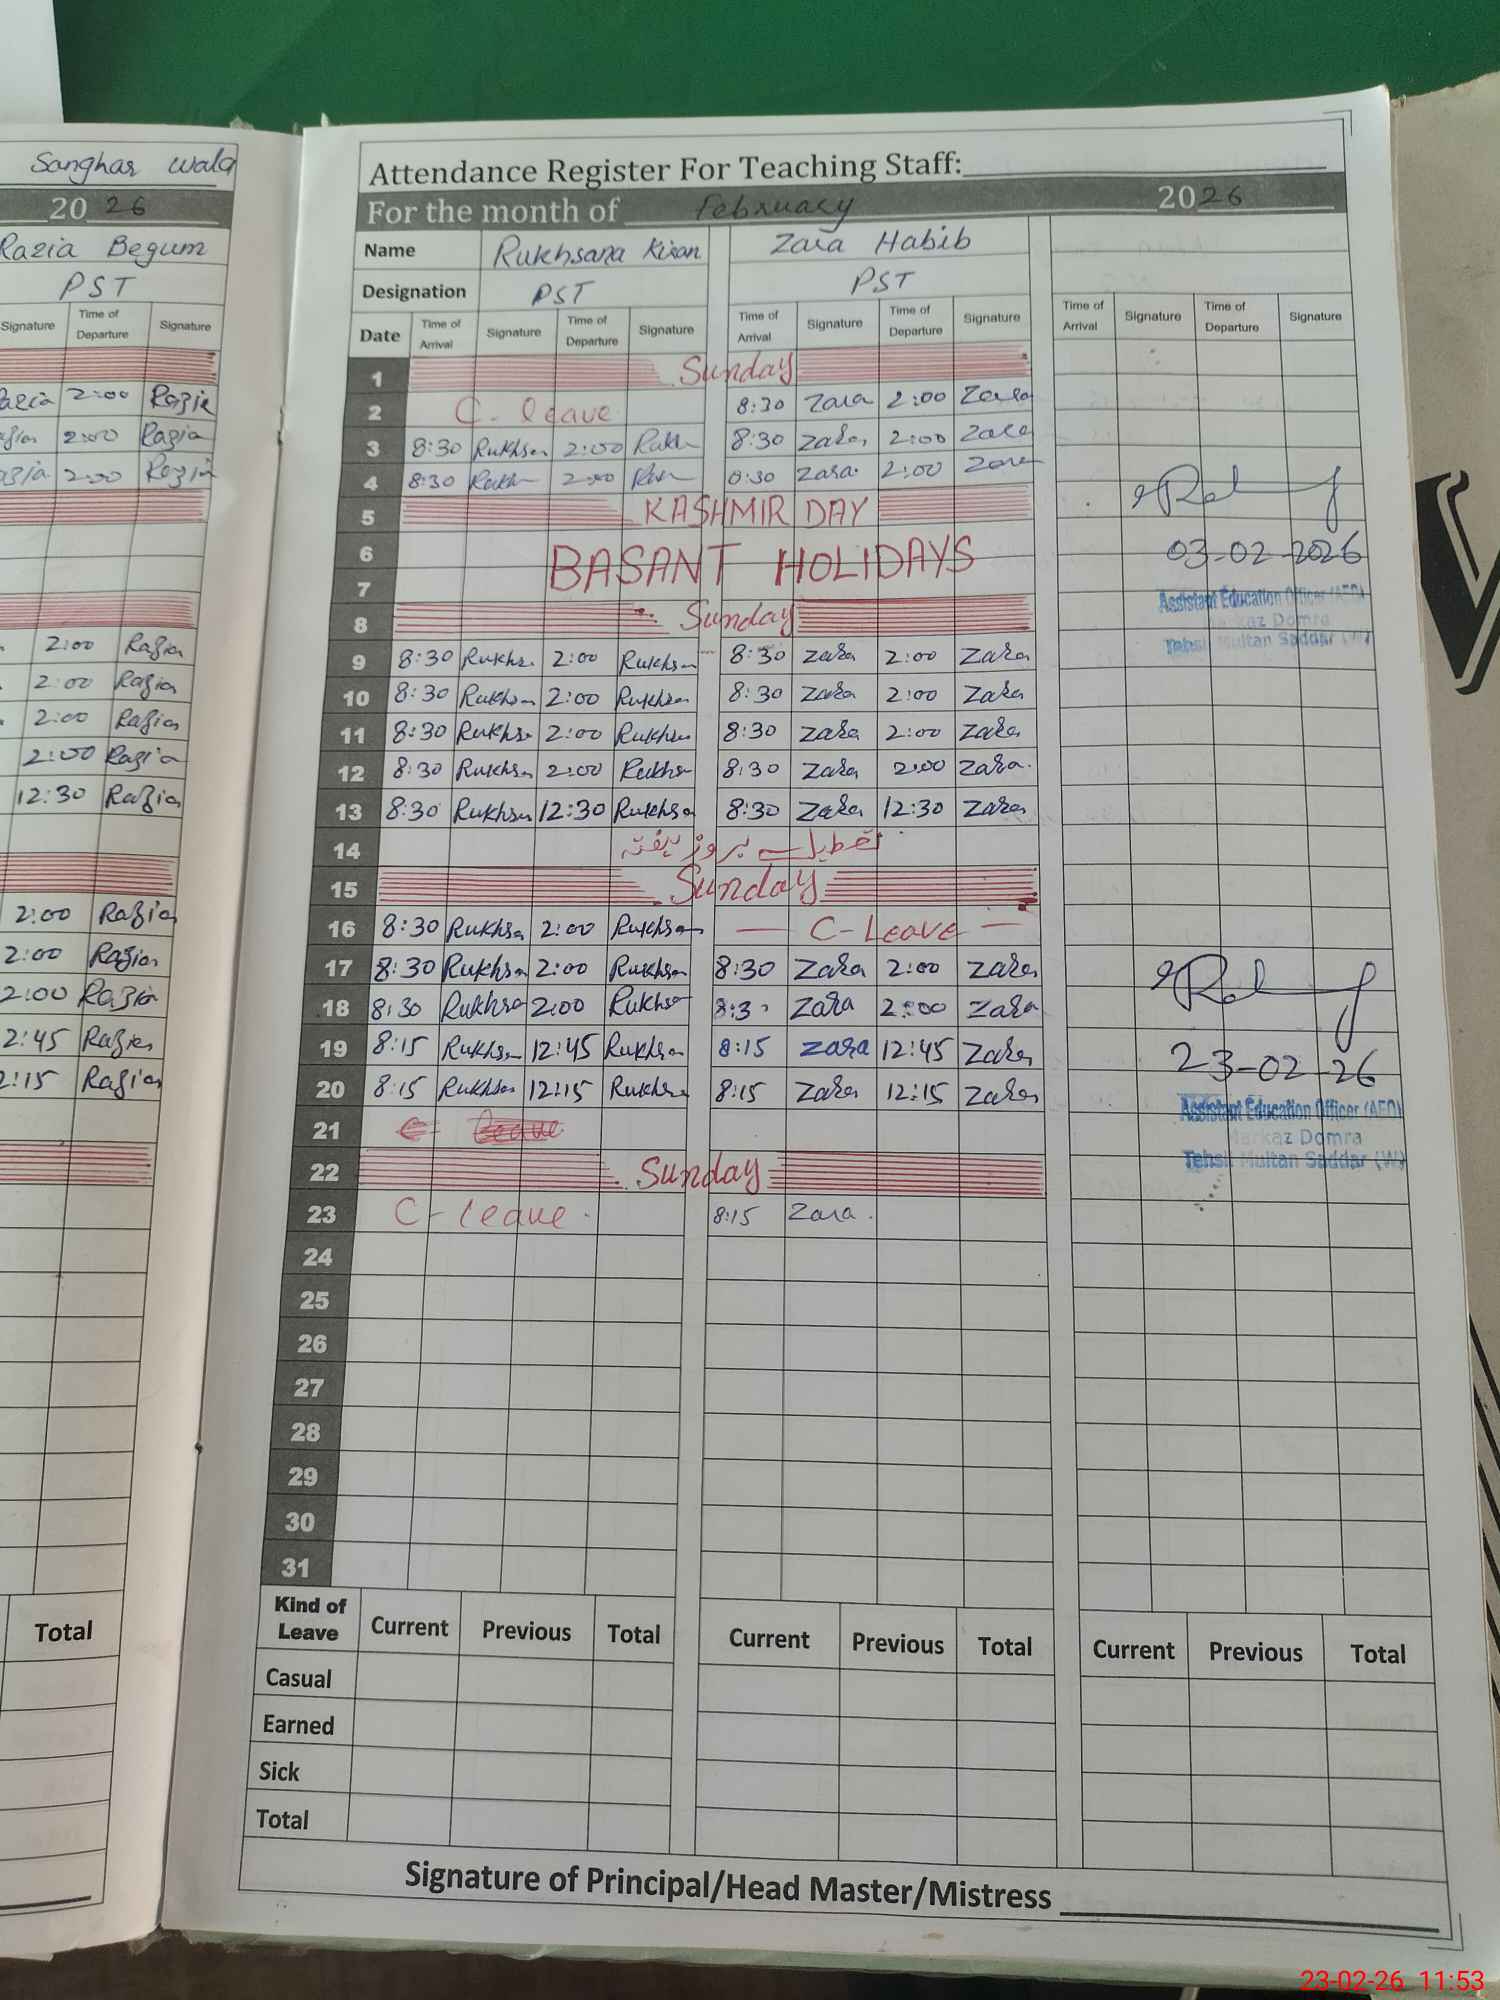 Sanghar Wala
2026
Razia Begum
PST
Signature Time of Departure Signature
2:00 Razia
2:00 Razia
2:00 Razia
2:00 Razia
2:00 Razia
2:00 Razia
2:00 Razia
12:30 Razia
2:00 Razia
2:00 Razia
2:00 Razia
2:45 Razia
2:15 Razia
Total
Attendance Register For Teaching Staff:
For the month of February 2026
Name Rukhsana Kiran Zara Habib
Designation PST PST
Date Time of Arrival Signature Time of Departure Signature Time of Arrival Signature Time of Departure Signature Time of Arrival Signature Time of Departure Signature
1 Sunday
2 C-leave 8:30 Zara 2:00 Zara
3 8:30 Rukhsa 2:00 Rukh 8:30 Zara 2:00 Zara
4 8:30 Rukh 2:00 Rukh 8:30 Zara 2:00 Zara
5 KASHMIR DAY
6 BASANT HOLIDAYS
7
03-02-2026
Assistant Education Officer (AEO)
Markaz Domra
Tehsil Multan Saddar (W)
8 Sunday
9 8:30 Rukhs 2:00 Rukhsa 8:30 Zara 2:00 Zara
10 8:30 Rukhsa 2:00 Rukhsa 8:30 Zara 2:00 Zara
11 8:30 Rukhs 2:00 Rukhsa 8:30 Zara 2:00 Zara
12 8:30 Rukhsa 2:00 Rukhs 8:30 Zara 2:00 Zara
13 8:30 Rukhsa 12:30 Rukhsa 8:30 Zara 12:30 Zara
14 تعطیل بروز ہفتہ
15 Sunday
16 8:30 Rukhsa 2:00 Rukhsa C-Leave
17 8:30 Rukhsa 2:00 Rukhsa 8:30 Zara 2:00 Zara
18 8:30 Rukhsa 2:00 Rukhsa 8:30 Zara 2:00 Zara
19 8:15 Rukhsa 12:45 Rukhsa 8:15 Zara 12:45 Zara
20 8:15 Rukhsa 12:15 Rukhsa 8:15 Zara 12:15 Zara
23-02-26
Assistant Education Officer (AEO)
Markaz Domra
Tehsil Multan Saddar (W)
21 C- Leave
22 Sunday
23 C-leave 8:15 Zara
24
25
26
27
28
29
30
31
Kind of Leave Current Previous Total Current Previous Total Current Previous Total
Casual
Earned
Sick
Total
Signature of Principal/Head Master/Mistress
23-02-26 11:53